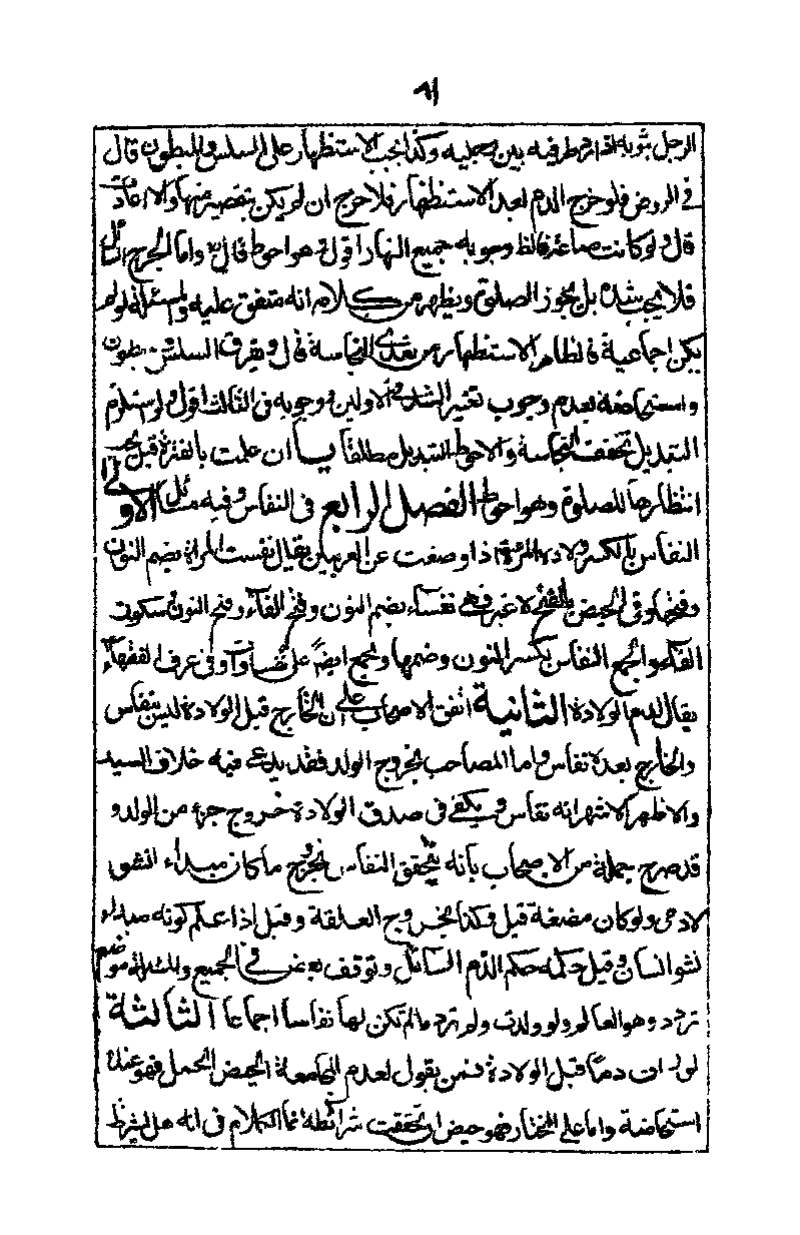 ٦١
الرجل بثوبه اذا اراد طرفيه بين رجليه وكذا يجب الاستظهار على السلس والمبطون قال
فى الروض فلو خرج الدم بعد الاستظهار فلا حرج ان لم يكن بتقصير منها والا اعادت
قال ولو كانت صائمة فالظ وجوبه جميع النهار اقول وهو احوط قال واما الجرح السائل
فلا يجب شده بل يجوز الصلوة ويظهر من كلامه انه متفق عليه والمسئلة لو لم
يكن اجماعية فالظاهر الاستظهار من تعدى النجاسة قال ويفرق السلس والمبطون
والمستحاضة بعدم وجوب تغيير الشداد فى الاولين ووجوبه فى الثالث اقول ولو استلزم
التبديل تخفيف النجاسة والاحوط التبديل مطلقا ان علمت بالفترة قبل يجب
انتظارها للصلوة وهو احوط الفصل الرابع فى النفاس وفيه مسائل الاولى
النفاس بالكسر ولادة المرئة اذا وضعت عن العربيين يقال نفست المراة بضم النون
وفتحها وفى الحيض بالفتح لا غير فهى نفساء بضم النون وفتح الفاء وفتح النون وسكون
الفاء والجمع النفاس بكسر النون وضمها ويجمع ايضا على نفساوات وفى عرف الفقهاء
يقال لدم الولادة الثانية اتفق الاصحاب على ان الخارج قبل الولادة ليس بنفاس
والخارج بعده نفاس واما المصاحب لخروج الولد فقد يدعى فيه خلاف السيد
والاظهر الاشهر انه نفاس ويكفى فى صدق الولادة خروج جزء من الولد و
قد صرح جملة من الاصحاب بانه يتحقق النفاس بخروج ما كان مبداء النشو
لادمى ولو كان مضغة قيل وكذا بخروج العلقة وقيل اذا علم كونه مبداء
نشو انسان وقيل حكمه حكم الدم السائل وتوقف بعض فى الجميع والمسئلة موضع
تردد وهو العالم ولو ولدت ولم تر دما لم تكن لها نفاسا اجماعا الثالثة
لو رات دما قبل الولادة فمن يقول بعدم المجامعة الحيض الحمل فهو عنده
استحاضة واما على المختار فهو حيض ان تحققت شرائطه انما الكلام فى انه هل يشترط